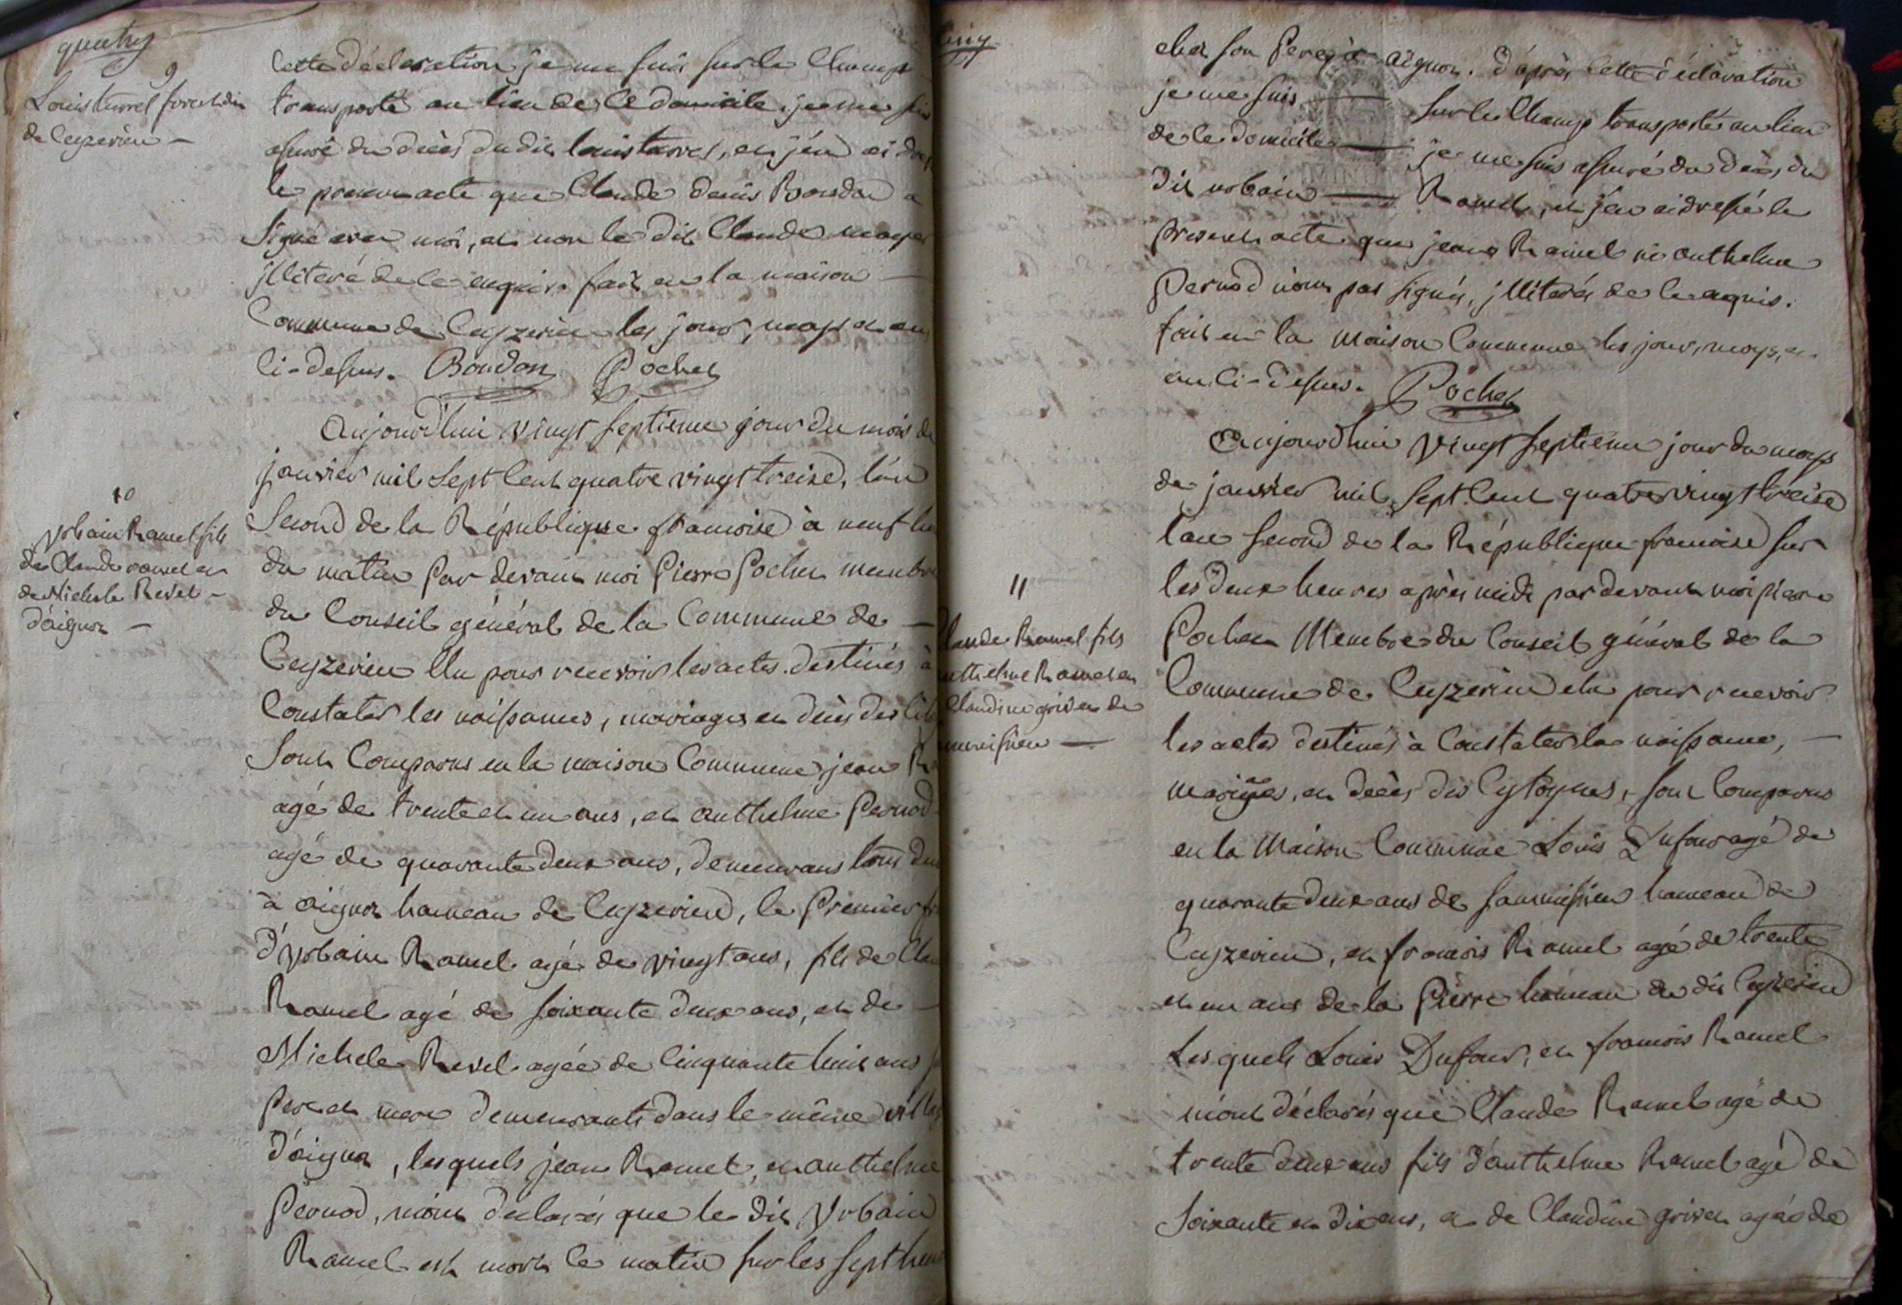 quatre
9
Louis turrel forcat din
de Ceyzerieu —
cette déclaration je me suis sur le Champ
transporté au lieu de ce domicile, je me suis
assuré du décès du dit louis turrel, et j'en ai dressé
le présent acte que Claude denis Boudon a
signé avec moi, et non le dit Claude
jlliteré de ce enquis. fait en la maison —
Commune de Ceyzerieu les jour, moys et an
Ci-dessus. Boudon Pochet
Aujourd'hui vingt septieme jour du mois de
janvier mil sept cent quatre vingt treize, l'an
second de la République francoise à neuf heu
du matin Par devant moi Pierre Pochet membre
du Conseil général de la Commune de —
Ceyzerieu Elu pour recevoir les actes destinés à
Constater les naissances, mariages et décès des Cit
sont Comparus en la maison Commune jean Ra
agé de trente et un ans, et anthelme Pernod
agé de quarante deux ans, demeurans tous deux
à aignoz hameau de Ceyzerieu, le Premier fr
d'Urbain Ramel agé de vingt ans, fils de Cla
Ramel agé de soixante deux ans, et de —
Michele Revel agée de Cinquante huit ans
Pere et mere demeurants dans le même village
d'aignoz, lesquels jean Ramel, et anthelme
Pernod, m'ont declarés que le dit Urbain
Ramel est mort ce matin sur les sept heures
10
Urbain Ramel fils
de Claude ramel et
de Michele Revel —
d'aignoz —
cinq
chez son Pere à aignoz. d'après cette déclaration
je me suis — sur le Champ transporté au lieu
de ce domicile — je me suis assuré du décès du
dit urbain — Ramel, et j'en ai dressé le
Present acte que jean Ramel ni anthelme
Pernod n'ont pas signés, jlliterés de ce enquis.
fait en la maison Commune les jour, moys, et
an Ci-dessus. Pochet
Aujourd'hui vingt septieme jour du moys
de janvier mil sept cent quatre vingt treize
l'an second de la République francoise sur
les deux heures après midi par devant moi pierre
Pochet Membre du Conseil général de la
Commune de Ceyzerieu elu pour recevoir
les actes destinés à Constater la naissance, —
mariages, et décès des Cytoyens, sont Comparus
en la Maison Commune Louis Dufour agé de
quarante deux ans de hameau de
Ceyzerieu, et francois Ramel agé de trente
et un ans de la Pierre hameau du dit Ceyzerieu
Lesquels Louis Dufour, et francois Ramel
m'ont déclarés que Claude Ramel agé de
trente deux ans fils d'anthelme Ramel agé de
soixante et dix ans, et de Claudine grivet agée de
11
Claude Ramel fils
anthelme Ramel et
Claudine grivet de